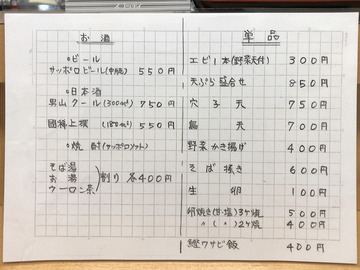 お酒
○ビール
サッポロビール(中瓶) 550円
○日本酒
男山クール(300ml) 750円
國稀上撰(180ml) 550円
○焼酎(サッポロソフト)
そば湯
お湯
ウーロン茶
割り 各400円
単品
エビ1本(野菜天付) 300円
天ぷら盛合せ 850円
穴子天 750円
天 700円
野菜かき揚げ 400円
そば掻き 600円
生卵 100円
卵焼き(甘・塩)3ヶ焼 500円
〃(〃)2ヶ焼 400円
鰹ワサビ飯 400円